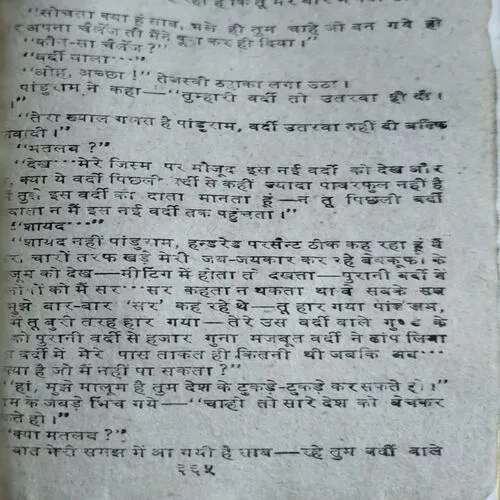 "सोचता क्या हूं साब, भले ही तुम चाहे जो बन गये हो
अपना चैलेंज तो मैंने पूरा कर ही दिया।"
"कौन-सा चैलेंज?"
"वर्दी वाला····"
"ओह, अच्छा!" तेजस्वी ठहाका लगा उठा।
पांडुराम ने कहा—"तुम्हारी वर्दी तो उतरवा ही दी।
"तेरा ख्याल गलत है पांडुराम, वर्दी उतरवा नहीं दी बल्कि
"मतलब?"
"देख···मेरे जिस्म पर मौजूद इस नई वर्दी को देख और
, क्या ये वर्दी पिछली वर्दी से कहीं ज्यादा पावरफुल नहीं है
मैं तुझे इस वर्दी का दाता मानता हूं—न तू पिछली वर्दी
न मैं इस नई वर्दी तक पहुंचता।"
"शायद···"
"शायद नहीं पांडुराम, हन्डरेड परसैन्ट ठीक कह रहा हूं मैं
चारों तरफ खड़े मेरी जय-जयकार कर रहे बेवकूफों के
को देख—मीटिंग में होता तो देखता—पुरानी वर्दी में
को मैं सर···सर कहता न थकता था वे सबके सब
मुझे बार-बार 'सर' कह रहे थे—तू हार गया पांडुराम,
में तू बुरी तरह हार गया—तेरे उस वर्दी वाले गुण्डे के
को पुरानी वर्दी से हजार गुना मजबूत वर्दी ने ढांप लिया
वर्दी में मेरे पास ताकत ही कितनी थी जबकि अब···
क्या है जो मैं नहीं पा सकता?"
"हां, मुझे मालूम है तुम देश के टुकड़े-टुकड़े कर सकते हो।"
के जबड़े भिंच गये—"चाहो तो सारे देश को बेचकर
हो।"
"क्या मतलब?"
बात मेरी समझ में आ गयी है साब—रहे तुम वर्दी वाले
३६५